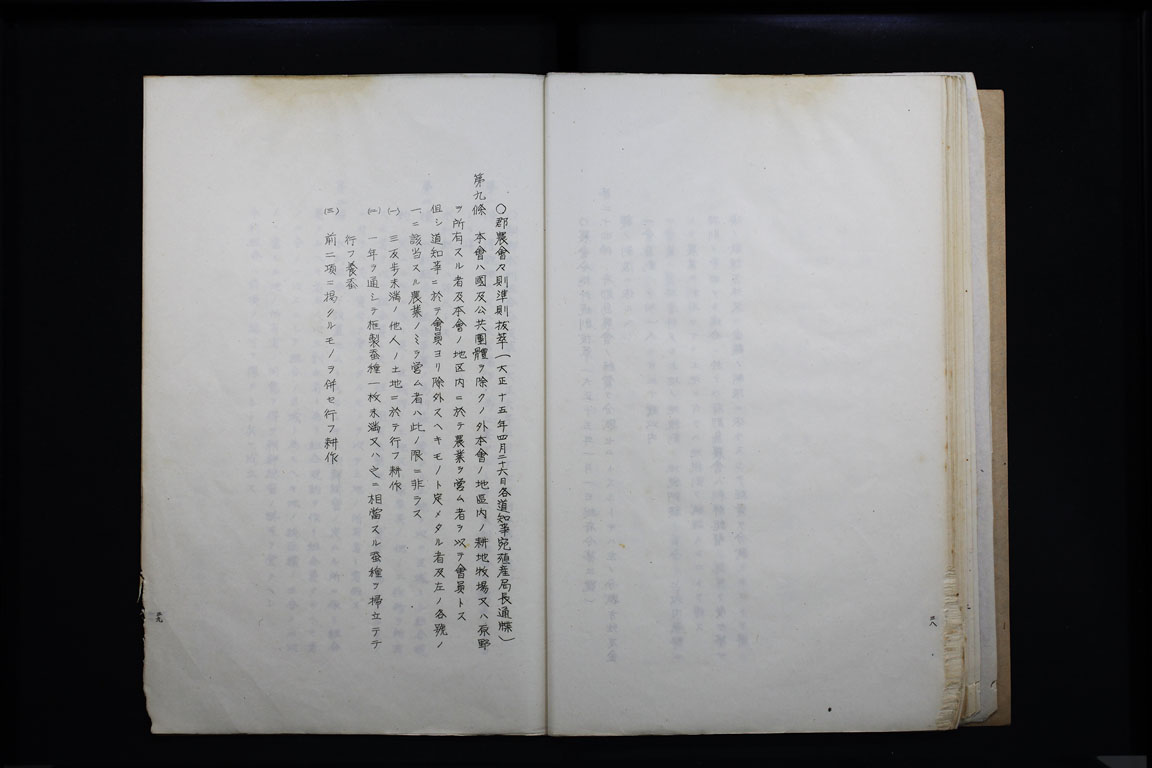 〇郡農會々則準則抜萃(大正十五年四月二十六日各道知事宛殖産局長通牒)
第九條 本會ハ國及公共團體ヲ除クノ外本會ノ地區内ノ耕地牧場又ハ原野
ヲ所有スル者及本會ノ地区内ニ於テ農業ヲ営ム者ヲ以テ會員トス
但シ道知事ニ於テ會員ヨリ除外スヘキモノト定メタル者及左ノ各號ノ
一ニ該当スル農業ノミヲ営ム者ハ此ノ限ニ非ラス
(一) 三反歩未満ノ他人ノ土地ニ於テ行フ耕作
(二) 一年ヲ通シテ框製蚕種一枚未満又ハ之ニ相當スル蚕種ヲ掃立テテ
行フ養蚕
(三) 前二項ニ掲クルモノヲ併セ行フ耕作